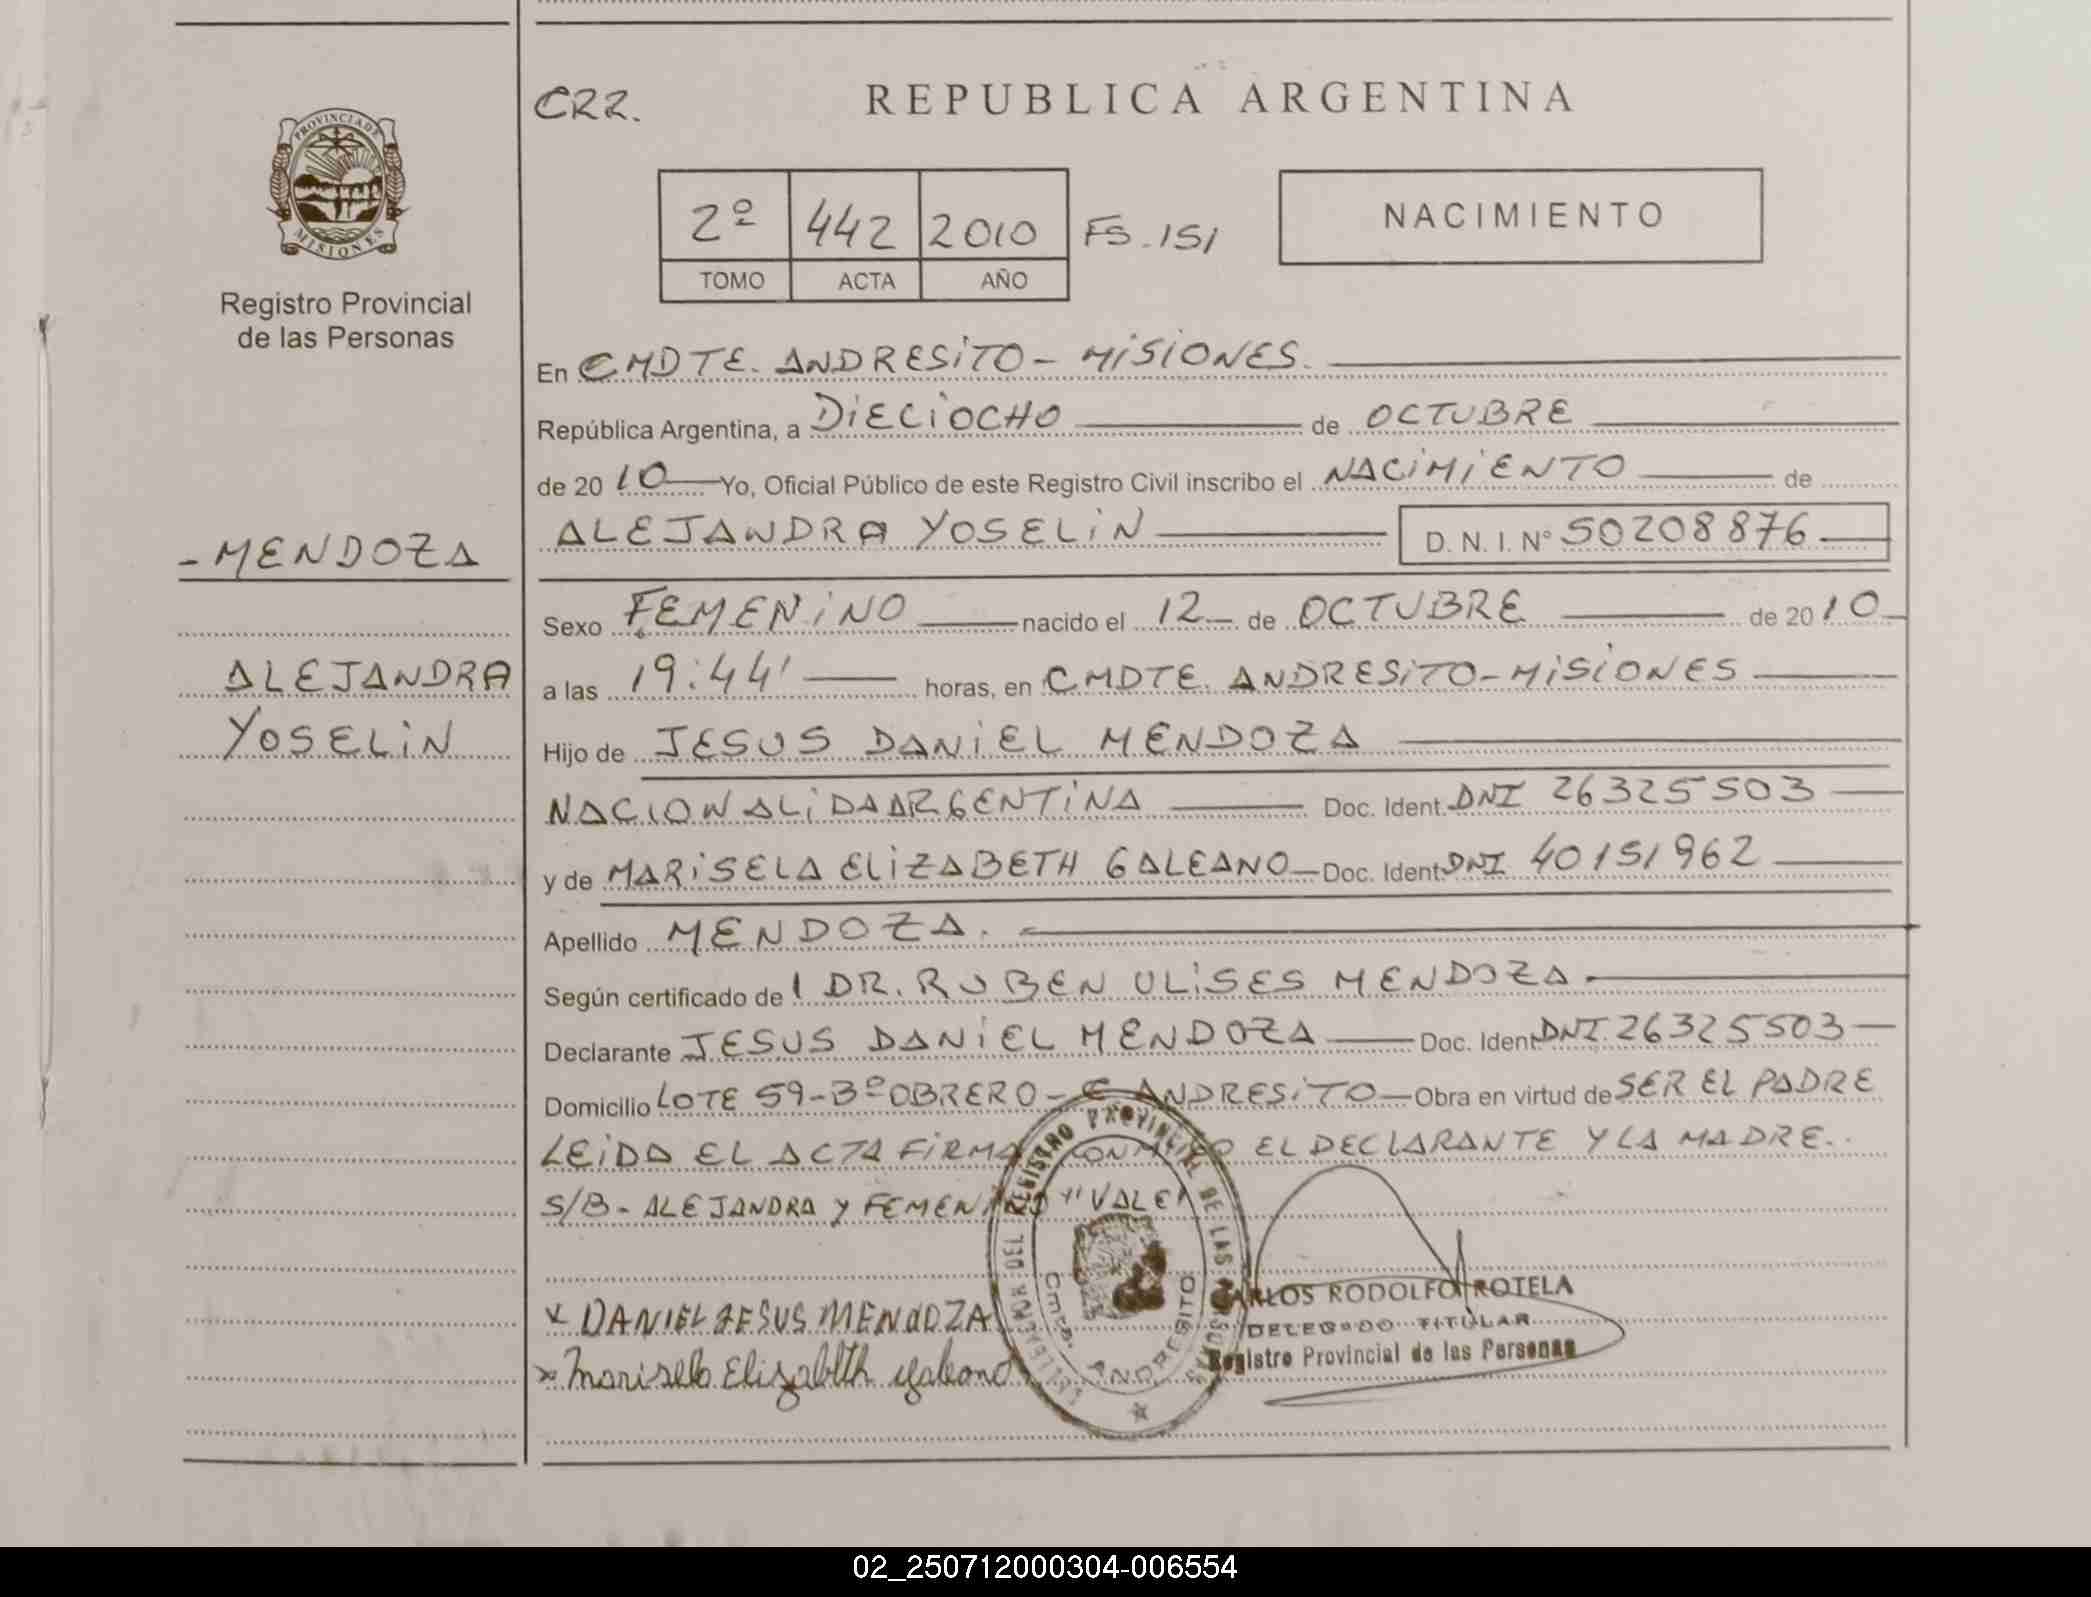 CRR.
REPUBLICA ARGENTINA
PROVINCIA DE
MISIONES
2º 442 2010 FS-151
TOMO ACTA AÑO
NACIMIENTO
Registro Provincial
de las Personas
En CMDTE. ANDRESITO - MISIONES.
República Argentina, a DIECIOCHO de OCTUBRE
de 2010 Yo, Oficial Público de este Registro Civil inscribo el NACIMIENTO de
ALEJANDRA YOSELIN D. N. I. Nº 50208876
- MENDOZA
ALEJANDRA
YOSELIN
Sexo FEMENINO nacido el 12 de OCTUBRE de 2010
a las 19:44' horas, en CMDTE. ANDRESITO - MISIONES
Hijo de JESUS DANIEL MENDOZA
NACIONALIDAARGENTINA Doc. Ident. DNI 26325503
y de MARISELA ELIZABETH GALEANO Doc. Ident. DNI 40151962
Apellido MENDOZA.
Según certificado de l DR. RUBEN ULISES MENDOZA
Declarante JESUS DANIEL MENDOZA Doc. Ident. DNI 26325503
Domicilio LOTE 59-Bº OBRERO - C ANDRESITO Obra en virtud de SER EL PADRE
LEIDA EL ACTA FIRMA CONMIGO EL DECLARANTE Y LA MADRE..
S/B- ALEJANDRA Y FEMENINO "VALE"
x DANIEL JESUS MENDOZA
x Marisela Elizabeth Galeano
DELEGACION DEL REGISTRO PROVINCIAL DE LAS PERSONAS
Cmte. ANDRESITO
CARLOS RODOLFO ROTELA
DELEGADO TITULAR
Registro Provincial de las Personas
02_250712000304-006554